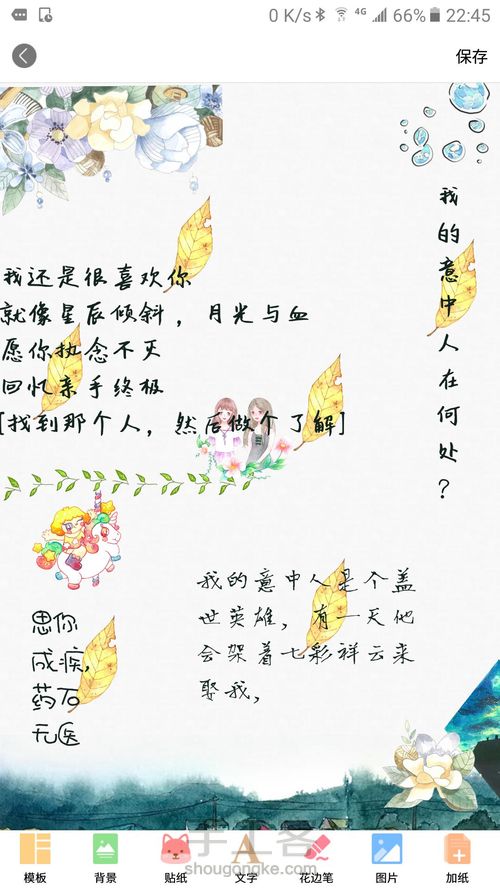 0 K/s 4G 66% 22:45
保存
我的意中人在何处？
我还是很喜欢你
就像星辰倾斜，月光与血
愿你执念不灭
回忆亲手终极
[找到那个人，然后做个了解]
我的意中人是个盖
世英雄，有一天他
会架着七彩祥云来
娶我，
思你
成疾，
药石
无医
模板 背景 贴纸 文字 花边笔 图片 加纸
手工客
shougongke.com